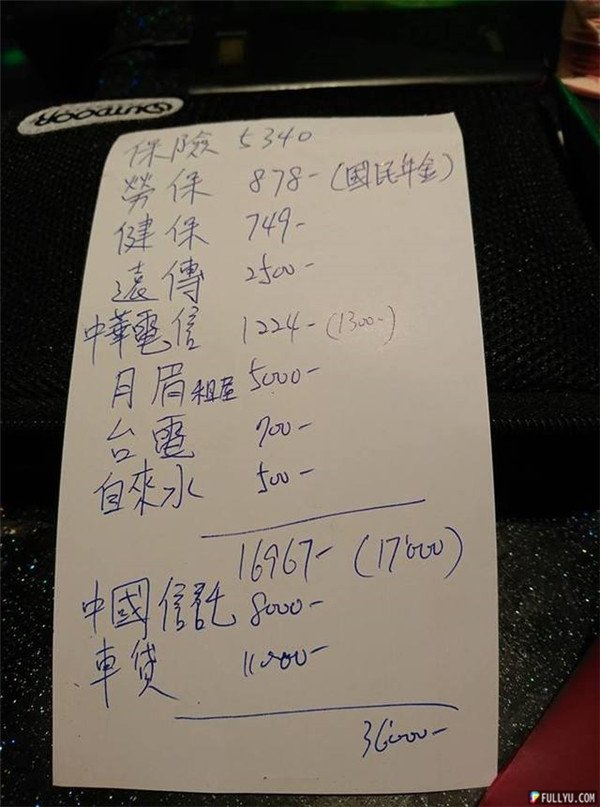 OUTDOOR
保險 5340
勞保 878-(國民年金)
健保 749-
遠傳 2500-
中華電信 1224-(1300-)
月眉租屋 5000-
台電 700-
自來水 500-
16967-(17'000)
中國信託 8000-
車貸 11000-
36'000-
FULLYU.COM